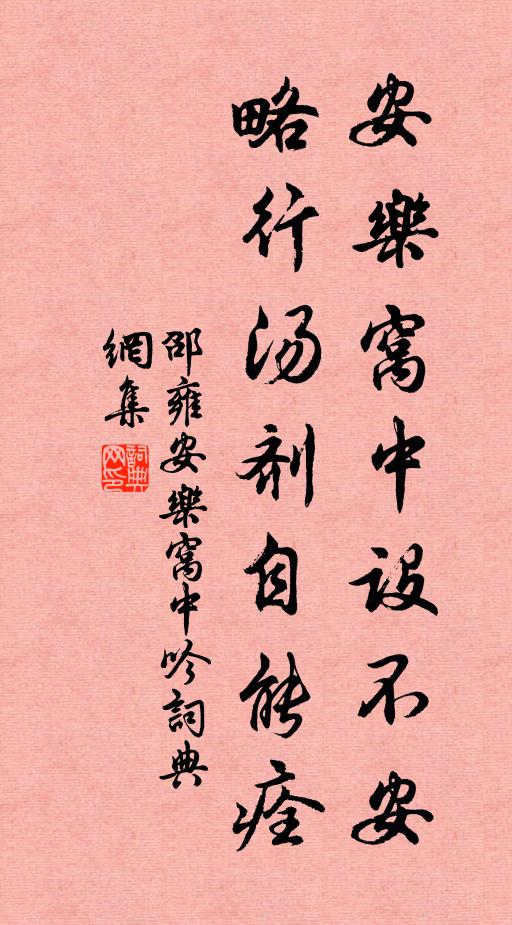 安樂窩中設不安
略行汤剂自能痊
邵雍安樂窩中吟詞典
網集
詞典网印